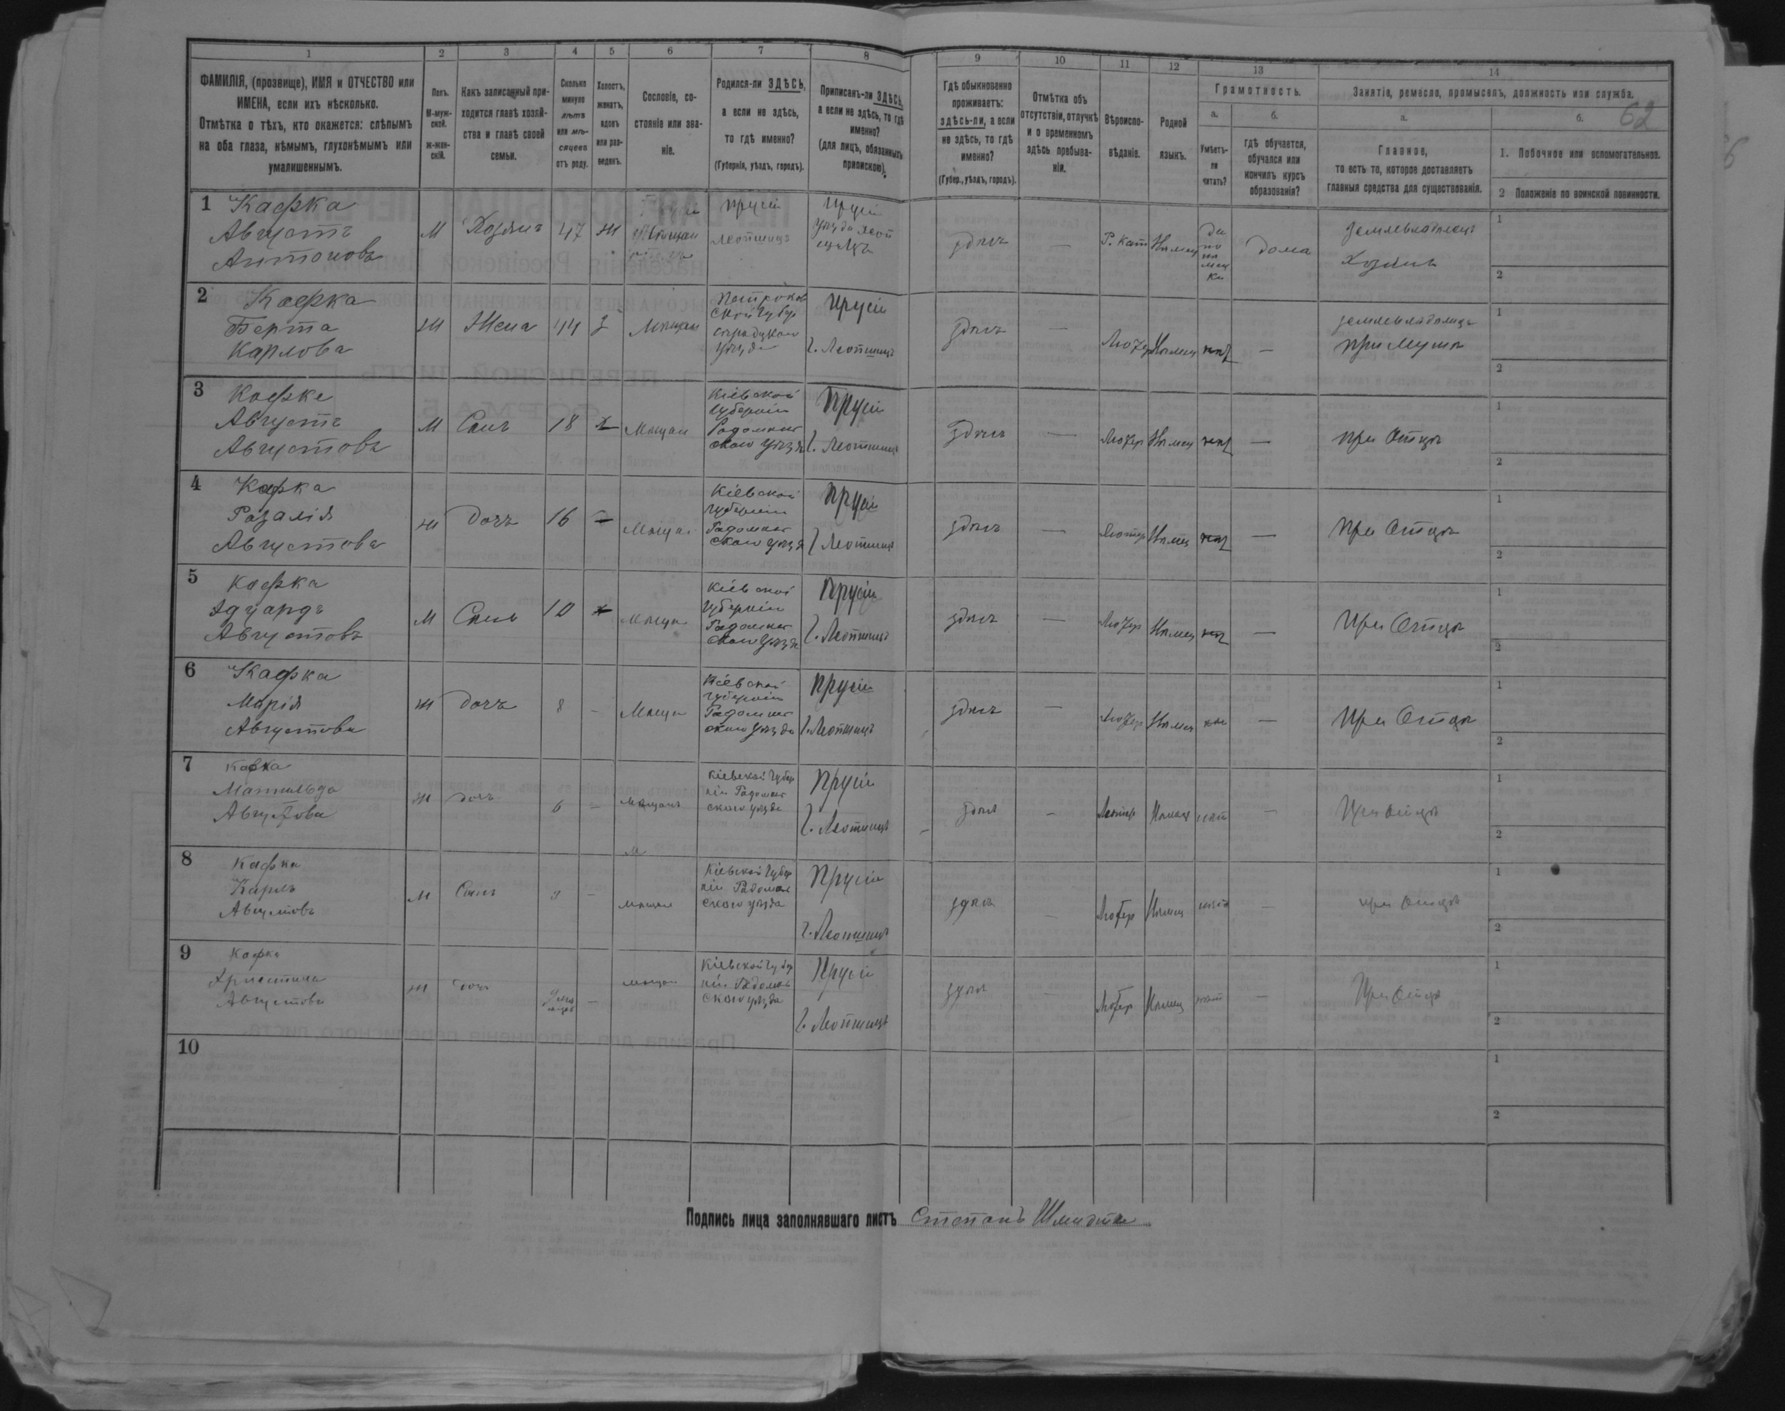 1 2 3 4 5 6 7 8 9 10 11 12 13 14
ФАМИЛІЯ, (прозвище), ИМЯ и ОТЧЕСТВО или
ИМЕНА, если ихъ нѣсколько.
Отмѣтка о тѣхъ, кто окажется: слѣпымъ
на оба глаза, нѣмымъ, глухонѣмымъ или
умалишеннымъ.
Полъ.
М-муж-
ской.
ж-жен-
скій.
Какъ записанный при-
ходится главѣ хозяй-
ства и главѣ своей
семьи.
Сколько
минуло
лѣтъ
или мѣ-
сяцевъ
отъ роду.
Холостъ,
женатъ,
вдовъ
или раз-
веденъ.
Сословіе, со-
стояніе или зва-
ніе.
Родился-ли ЗДѢСЬ,
а если не здѣсь,
то гдѣ именно?
(Губернія, уѣздъ, городъ).
Приписанъ-ли ЗДѢСЬ,
а если не здѣсь, то гдѣ
именно?
(для лицъ, обязанныхъ
припискою).
Гдѣ обыкновенно
проживаетъ:
здѣсь-ли, а если
не здѣсь, то гдѣ
именно?
(Губер., уѣздъ, городъ).
Отмѣтка объ
отсутствіи, отлучкѣ
и о временномъ
здѣсь пребыва-
ніи.
Вѣроиспо-
вѣданіе.
Родной
языкъ.
Грамотность.
а.
Умѣетъ-
ли
читать?
б.
гдѣ обучается,
обучался или
кончилъ курсъ
образованія?
Занятіе, ремесло, промыселъ, должность или служба.
а.
Главное,
то есть то, которое доставляетъ
главныя средства для существованія.
б.
62
1. Побочное или вспомогательное.
2 Положеніе по воинской повинности.
1 Кафка
Августъ
Антоновъ
М Хозяинъ 47 Ж
Прусія
Прусія
здѣсь — Р. кат Нѣмец
Да
дома
землевладѣлецъ
Хозяинъ
1
2
2 Кафка
Берта
Карлова
Ж Жена 44 З Мѣщан
Прусія
г. Леопшицъ
здѣсь — Лютер Нѣмец нет —
при мужѣ
1
2
3 Кафке
Августъ
Августовъ
М Сынъ 18 Х Мѣщан
Кіевской
Губерніи
Радомысл
скаго уѣзда
Прусія
г. Леопшицъ
здѣсь — Лютер Нѣмец нет —
при Отцѣ
1
2
4 Кафка
Розалія
Августова
Ж Дочь 16 Мѣщан
Кіевской
Губерніи
Радомысл
скаго уѣзда
Прусія
г. Леопшицъ
здѣсь — Лютер Нѣмец нет —
При Отцѣ
1
2
5 Кафка
Эдуардъ
Августовъ
М Сынъ 10 Х Мѣщан
Кіевской
Губерніи
Радомысл
скаго уѣзда
Прусія
г. Леопшицъ
здѣсь — Лютер Нѣмец нет —
При Отцѣ
1
2
6 Кафка
Марія
Августова
Ж Дочь 8 – Мѣщан
Кіевской
Губерніи
Радомысл
скаго уѣзда
Прусія
г. Леопшицъ
здѣсь — Лютер Нѣмец —
При Отцѣ
1
2
7 Кафка
Матильда
Августова
Ж Дочь 6 – мѣщанъ
Кіевской Губер
ніи Радомыс
скаго уѣзда
Прусія
г. Леопшицъ
здѣся – Лютер Нѣмец нѣт —
При отцѣ
1
2
8 Кафка
Карлъ
Августовъ
М Сынъ – мѣщан
Кіевской Губер
ніи Радомыс
скаго уѣзда
Прусія
г. Леопшицъ
здѣся Лютер Нѣмец —
при отцѣ
1
2
9 Кафка
Християна
Августова
Ж дочь – мѣщан
Кіевской Губер
ніи Радомыс
скаго уѣзда
Прусія
г. Леопшицъ
здѣся – Лютер Нѣмец —
При отцѣ
1
2
10
1
2
Подпись лица заполнявшаго листъ Степанъ Шмидтъ